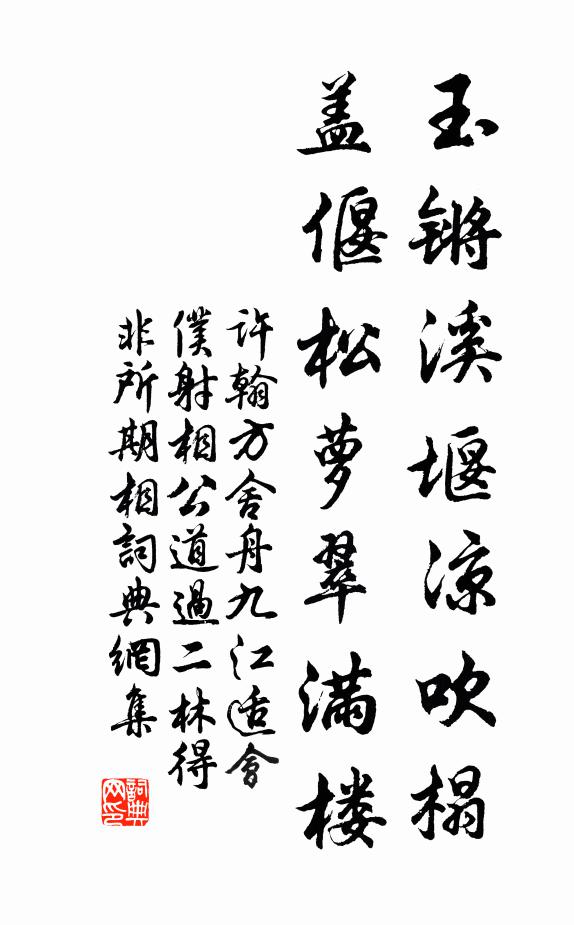 玉锵溪堰凉吹榻
盖偃松萝翠满楼
許翰方舍舟九江适會
僕射相公道過二林得
非所期相詞典網集
詞典网印